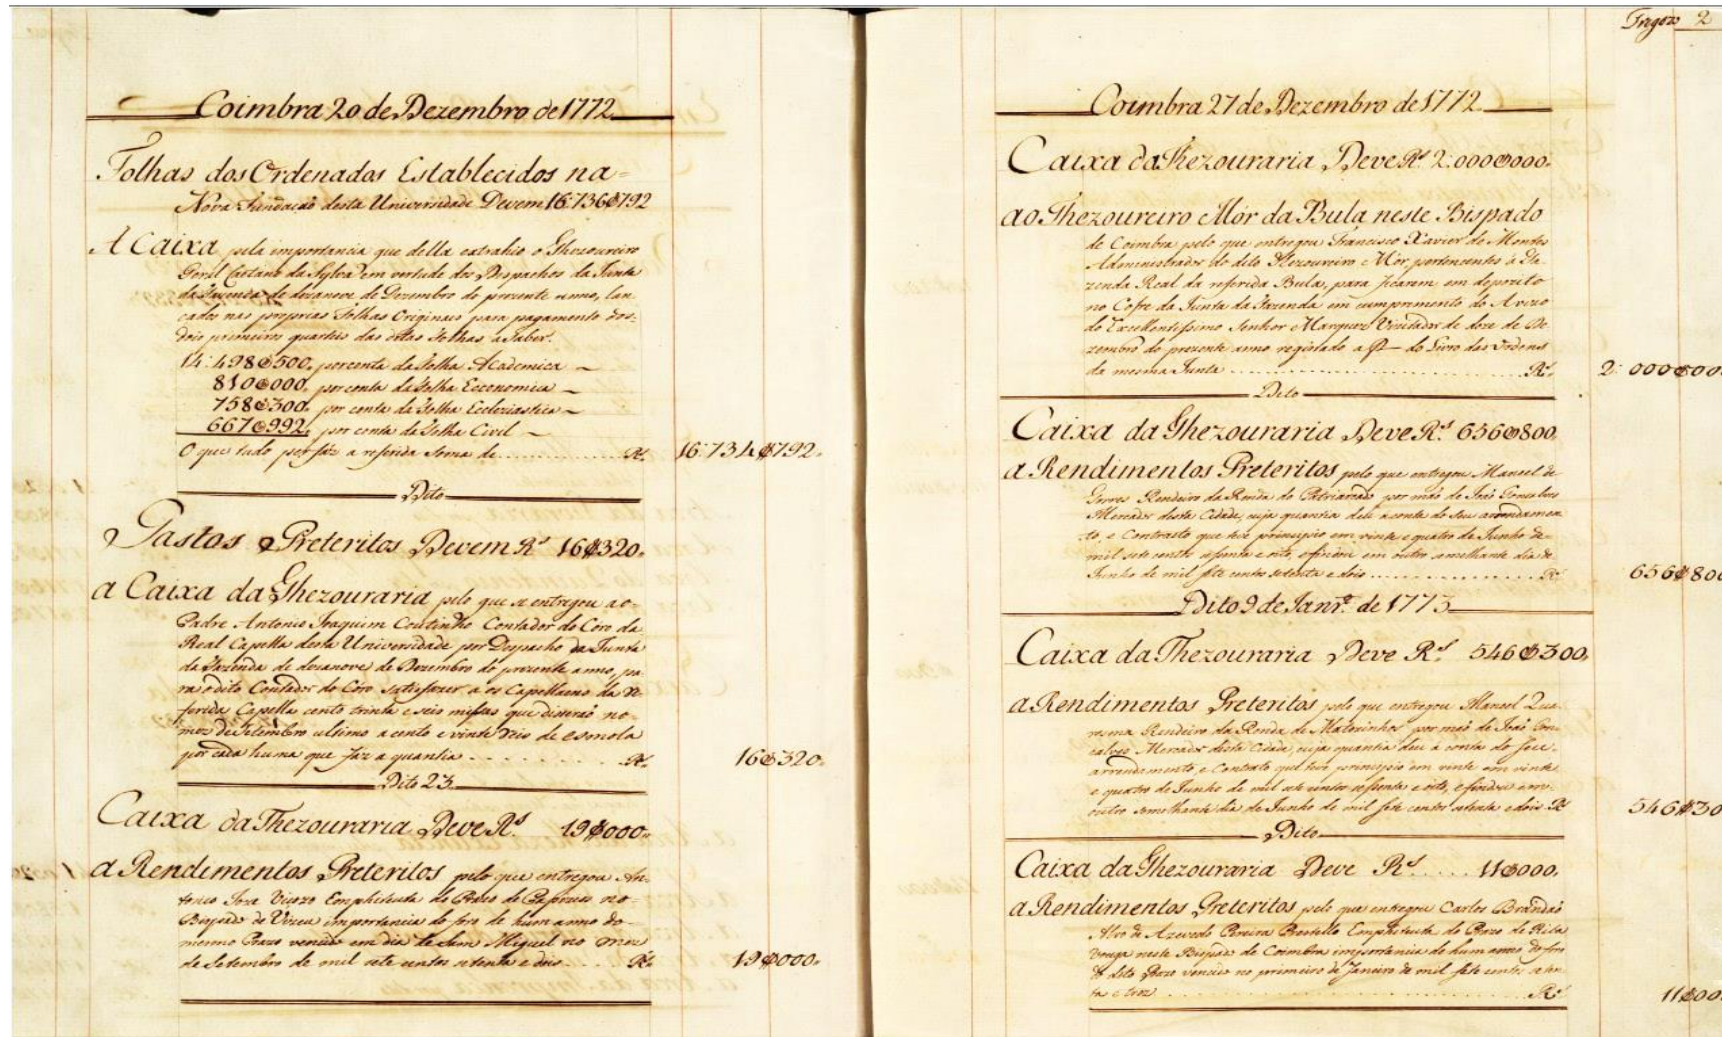 Coimbra 20 de Dezembro de 1772
Folhas dos Ordenados Establecidos na
Nova Fundação desta Universidade Devem 16:736$792
A Caixa pela importancia que della extrahio o Thezoureiro
Geral Caetano da Sylva em vertude dos Despachos da Junta
da Fazenda de dezanove de Dezembro do prezente anno, lan-
cados nas proprias Folhas Originais para pagamento dos
dois primeiros quarteis das ditas Folhas a Saber.
14:498$500, por conta da Folha Academica
810$000, por conta da Folha Economica
758$300, por conta da Folha Ecclesiastica
667$992, por conta da Folha Civil
O que tudo perfaz a referida soma de Rs. 16:734$792.
Dito
Gastos Preteritos Devem Rs 16$320.
a Caixa da Thezouraria pelo que se entregou ao
Padre Antonio Joaquim Coutinho Contador do Coro da
Real Capella desta Universidade por Despacho da Junta
da Fazenda de dezanove de Dezembro do prezente anno, pa-
ra o dito Contador do Coro satisfazer a os Capellaens da re-
ferida Capella cento trinta e seis missas que disserão no
mez de Setembro ultimo a cento e vinte reis de esmola
por cada huma que faz a quantia Rs. 16$320.
Dito 23
Caixa da Thezouraria Deve Rs. 19$000.
a Rendimentos Preteritos pelo que entregou An-
tonio Joze Emphiteuta do Prazo de no
Bispado de Vizeu importancia do foro de hum anno do
mesmo Prazo vencido em dia de Sam Miguel no mez
de Setembro de mil sete centos setenta e dois Rs. 19$000.
Fragozo 2
Coimbra 27 de Dezembro de 1772
Caixa da Thezouraria Deve Rs 2:000$000.
ao Thezoureiro Mór da Bula neste Bispado
de Coimbra pelo que entregou Francisco Xavier de Montes
Administrador do dito Thezoureiro Mór pertencentes à Fa-
zenda Real da referida Bula, para ficarem em deposito
no Cofre da Junta da Fazenda em cumprimento do Avizo
do Excellentissimo Senhor Marquez Vizitador de doze de De-
zembro do prezente anno registado a f do Livro das Ordens
da mesma Junta Rs. 2:000$00
Dito
Caixa da Thezouraria Deve Rs. 656$800.
a Rendimentos Preteritos pelo que entregou Manoel de
Rendeiro da Renda do por mão de João Gonsalves
Mercador desta Cidade, cuja quantia deu à conta do seu arrendamen
to, e Contracto que teve principio em vinte e quatro de Junho de
mil sete centos sessenta e oito, e findou em outro semelhante dia de
Junho de mil sete centos setenta e dois Rs 656$800
Dito 9 de Janro. de 1773
Caixa da Thezouraria Deve Rs. 546$300.
a Rendimentos Preteritos pelo que entregou Manoel Qua-
resma Rendeiro da Renda de Matozinhos por mão de João Gon-
salves Mercador desta Cidade, cuja quantia deu à conta do seu
arrendamento, e Contrato que teve principio em vinte em vinte
e quatro de Junho de mil sete centos sessenta e oito, e findou em
outro semelhante dia de Junho de mil sete centos setenta e dois Rs 546$30
Dito
Caixa da Thezouraria Deve Rs. 11$000.
a Rendimentos Preteritos pelo que entregou Carlos Brandão
Alvo de Azevedo Pereira Emphiteuta do Prazo de Riba
Vouga neste Bispado de Coimbra importancia de hum anno do foro
do dito Prazo vencido no primeiro de Janeiro de mil sete centos seten-
ta e trez Rs 11$00